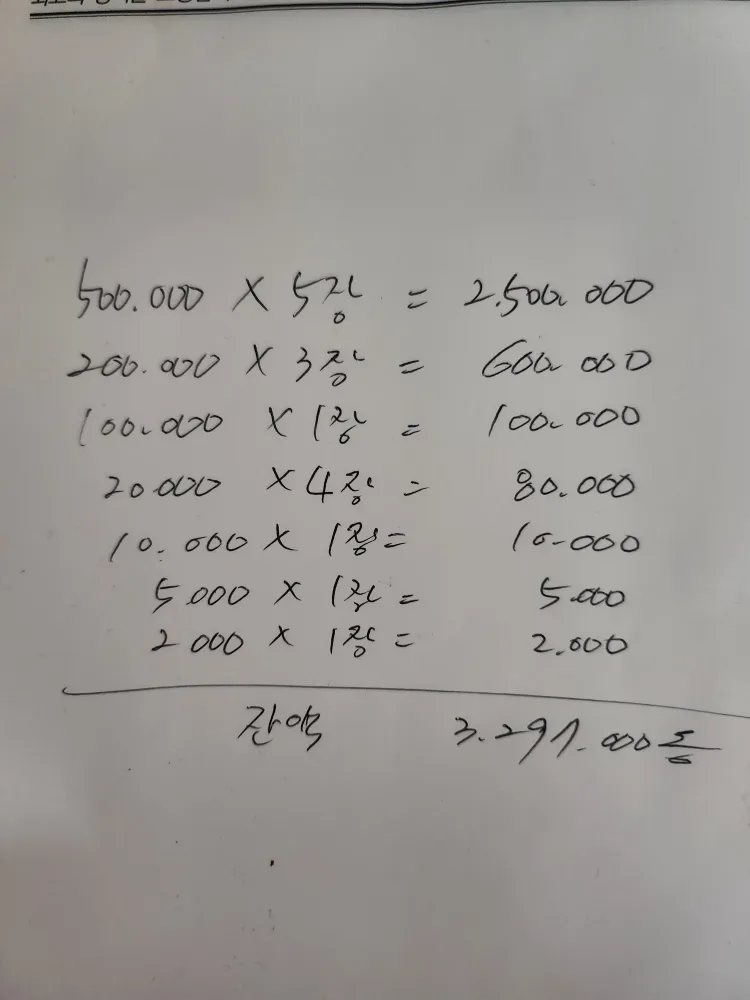 500.000 X 5장 = 2.500.000
200.000 X 3장 = 600.000
100.000 X 1장 = 100.000
20.000 X 4장 = 80.000
10.000 X 1장 = 10.000
5.000 X 1장 = 5.000
2.000 X 1장 = 2.000
잔액 3.297.000동